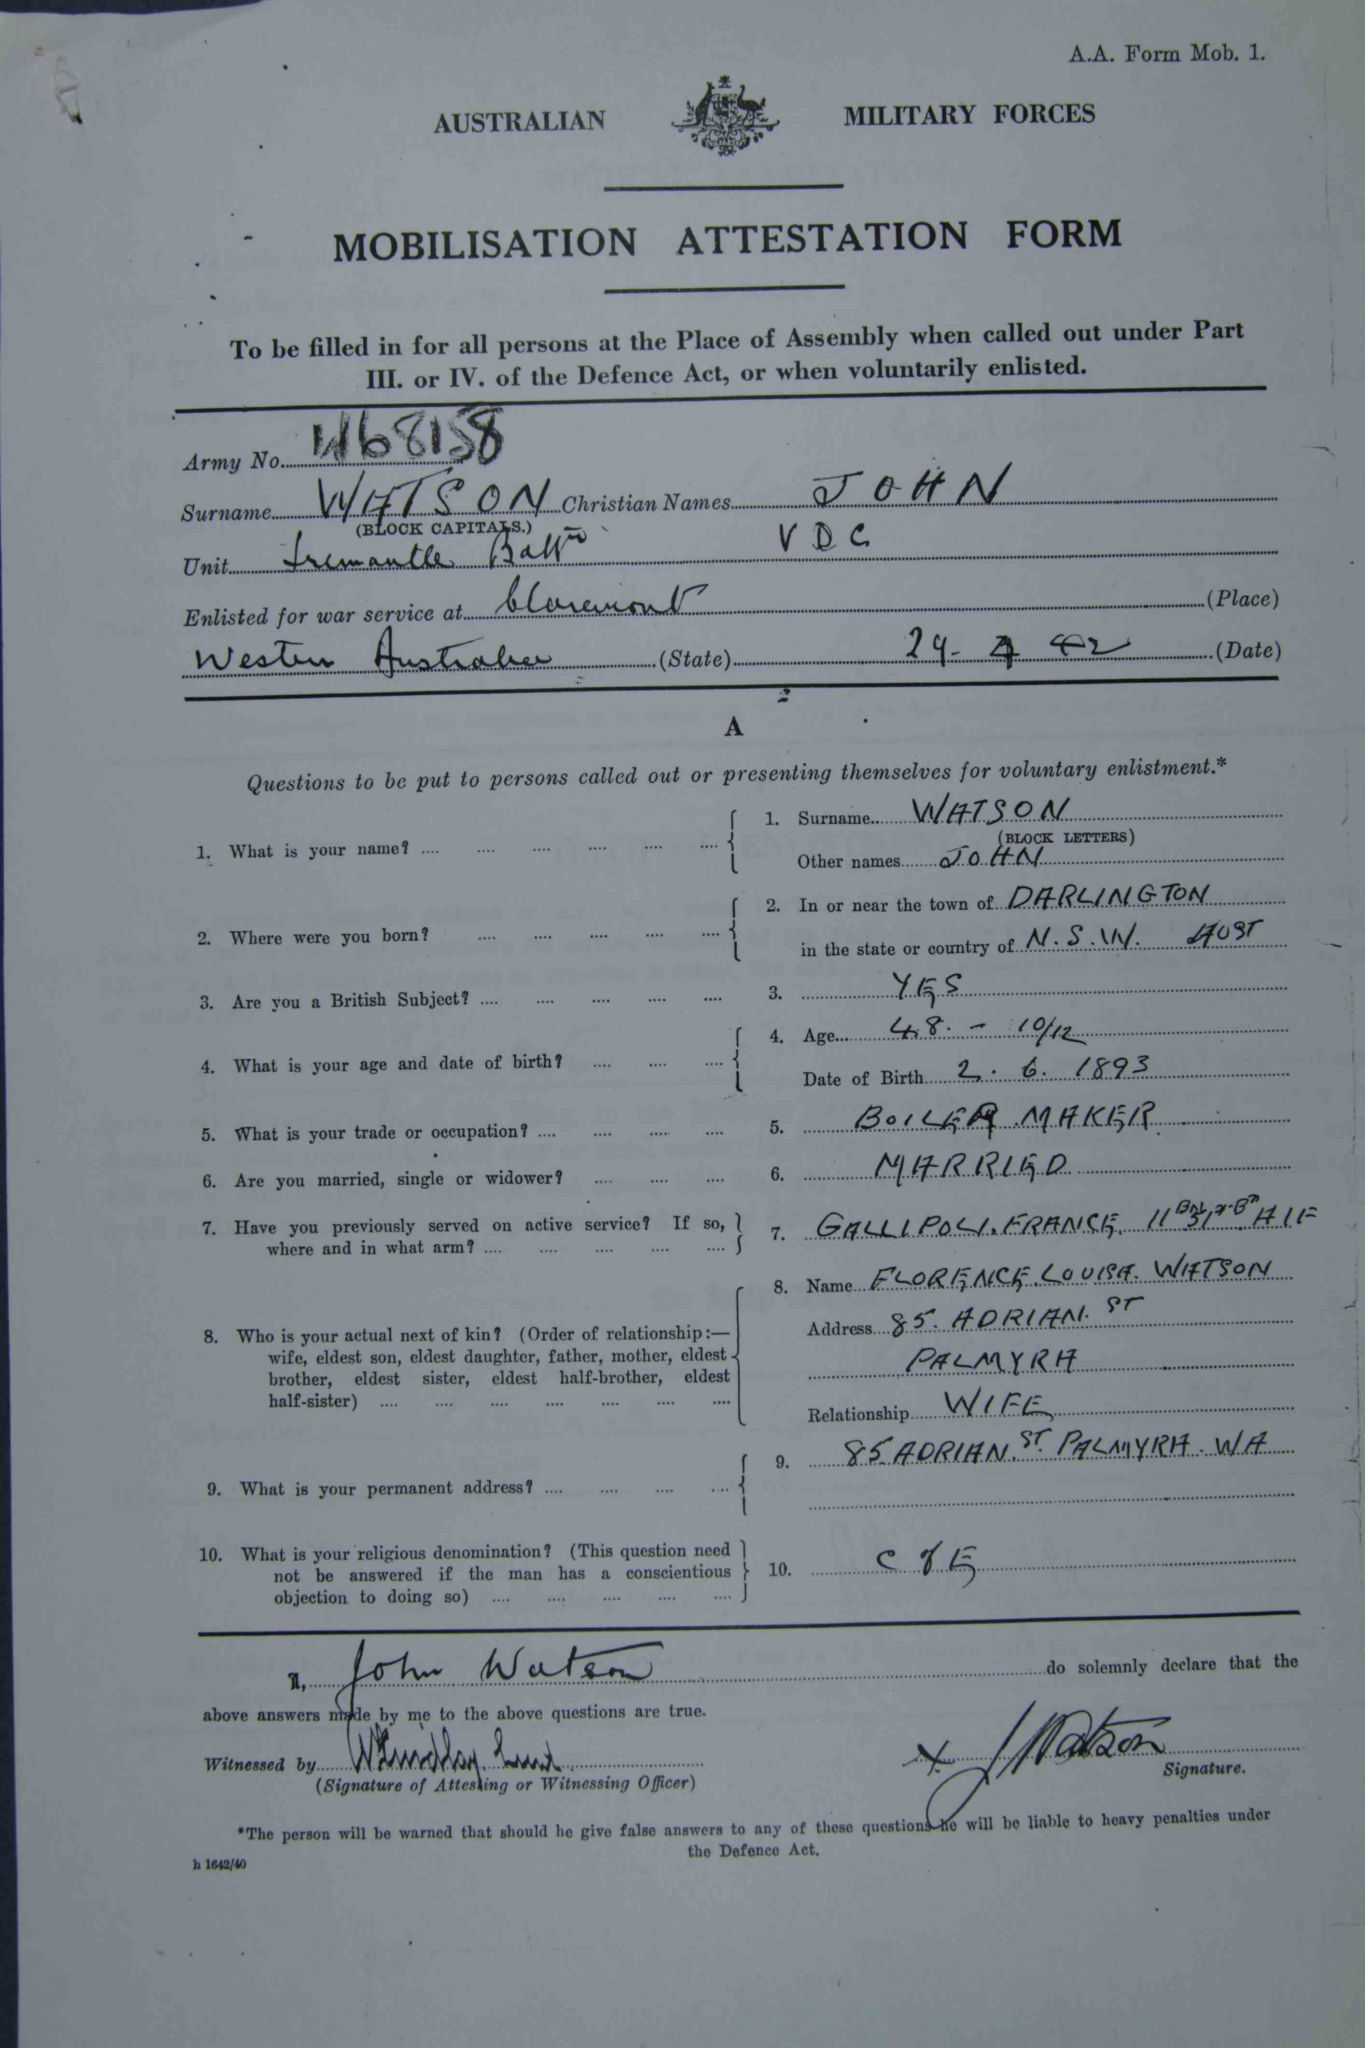 A.A. Form Mob. 1.
AUSTRALIAN MILITARY FORCES
MOBILISATION ATTESTATION FORM
To be filled in for all persons at the Place of Assembly when called out under Part
III. or IV. of the Defence Act, or when voluntarily enlisted.
Army No. W68158
Surname WATSON Christian Names JOHN
(BLOCK CAPITALS.)
Unit Fremantle Battn VDC
Enlisted for war service at Claremont (Place)
Western Australia (State) 29- 4 42 (Date)
A
Questions to be put to persons called out or presenting themselves for voluntary enlistment.*
1. What is your name? .... 1. Surname WATSON
(BLOCK LETTERS)
Other names JOHN
2. Where were you born? .... 2. In or near the town of DARLINGTON
in the state or country of N.S.W. AUST
3. Are you a British Subject? .... 3. YES
4. What is your age and date of birth? .... 4. Age 48 - 10/12
Date of Birth 2. 6. 1893
5. What is your trade or occupation? .... 5. BOILER MAKER
6. Are you married, single or widower? .... 6. MARRIED
7. Have you previously served on active service? If so, 7. GALLIPOLI. FRANCE. 11 Bn 51 Bn AIF
where and in what arm? ....
8. Name FLORENCE. LOUISA. WATSON
Address 85. ADRIAN. ST
8. Who is your actual next of kin? (Order of relationship:—
wife, eldest son, eldest daughter, father, mother, eldest PALMYRA
brother, eldest sister, eldest half-brother, eldest
half-sister) .... Relationship WIFE
9. What is your permanent address? .... 9. 85 ADRIAN. ST. PALMYRA. WA
10. What is your religious denomination? (This question need
not be answered if the man has a conscientious 10. C of E
objection to doing so) ....
I, John Watson do solemnly declare that the
above answers made by me to the above questions are true.
Witnessed by
x J Watson
(Signature of Attesting or Witnessing Officer) Signature.
*The person will be warned that should he give false answers to any of these questions he will be liable to heavy penalties under
the Defence Act.
h 1642/40